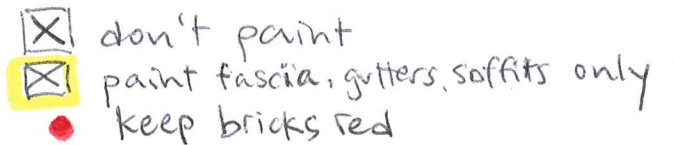 don't paint
paint fascia, gutters, soffits only
keep bricks red